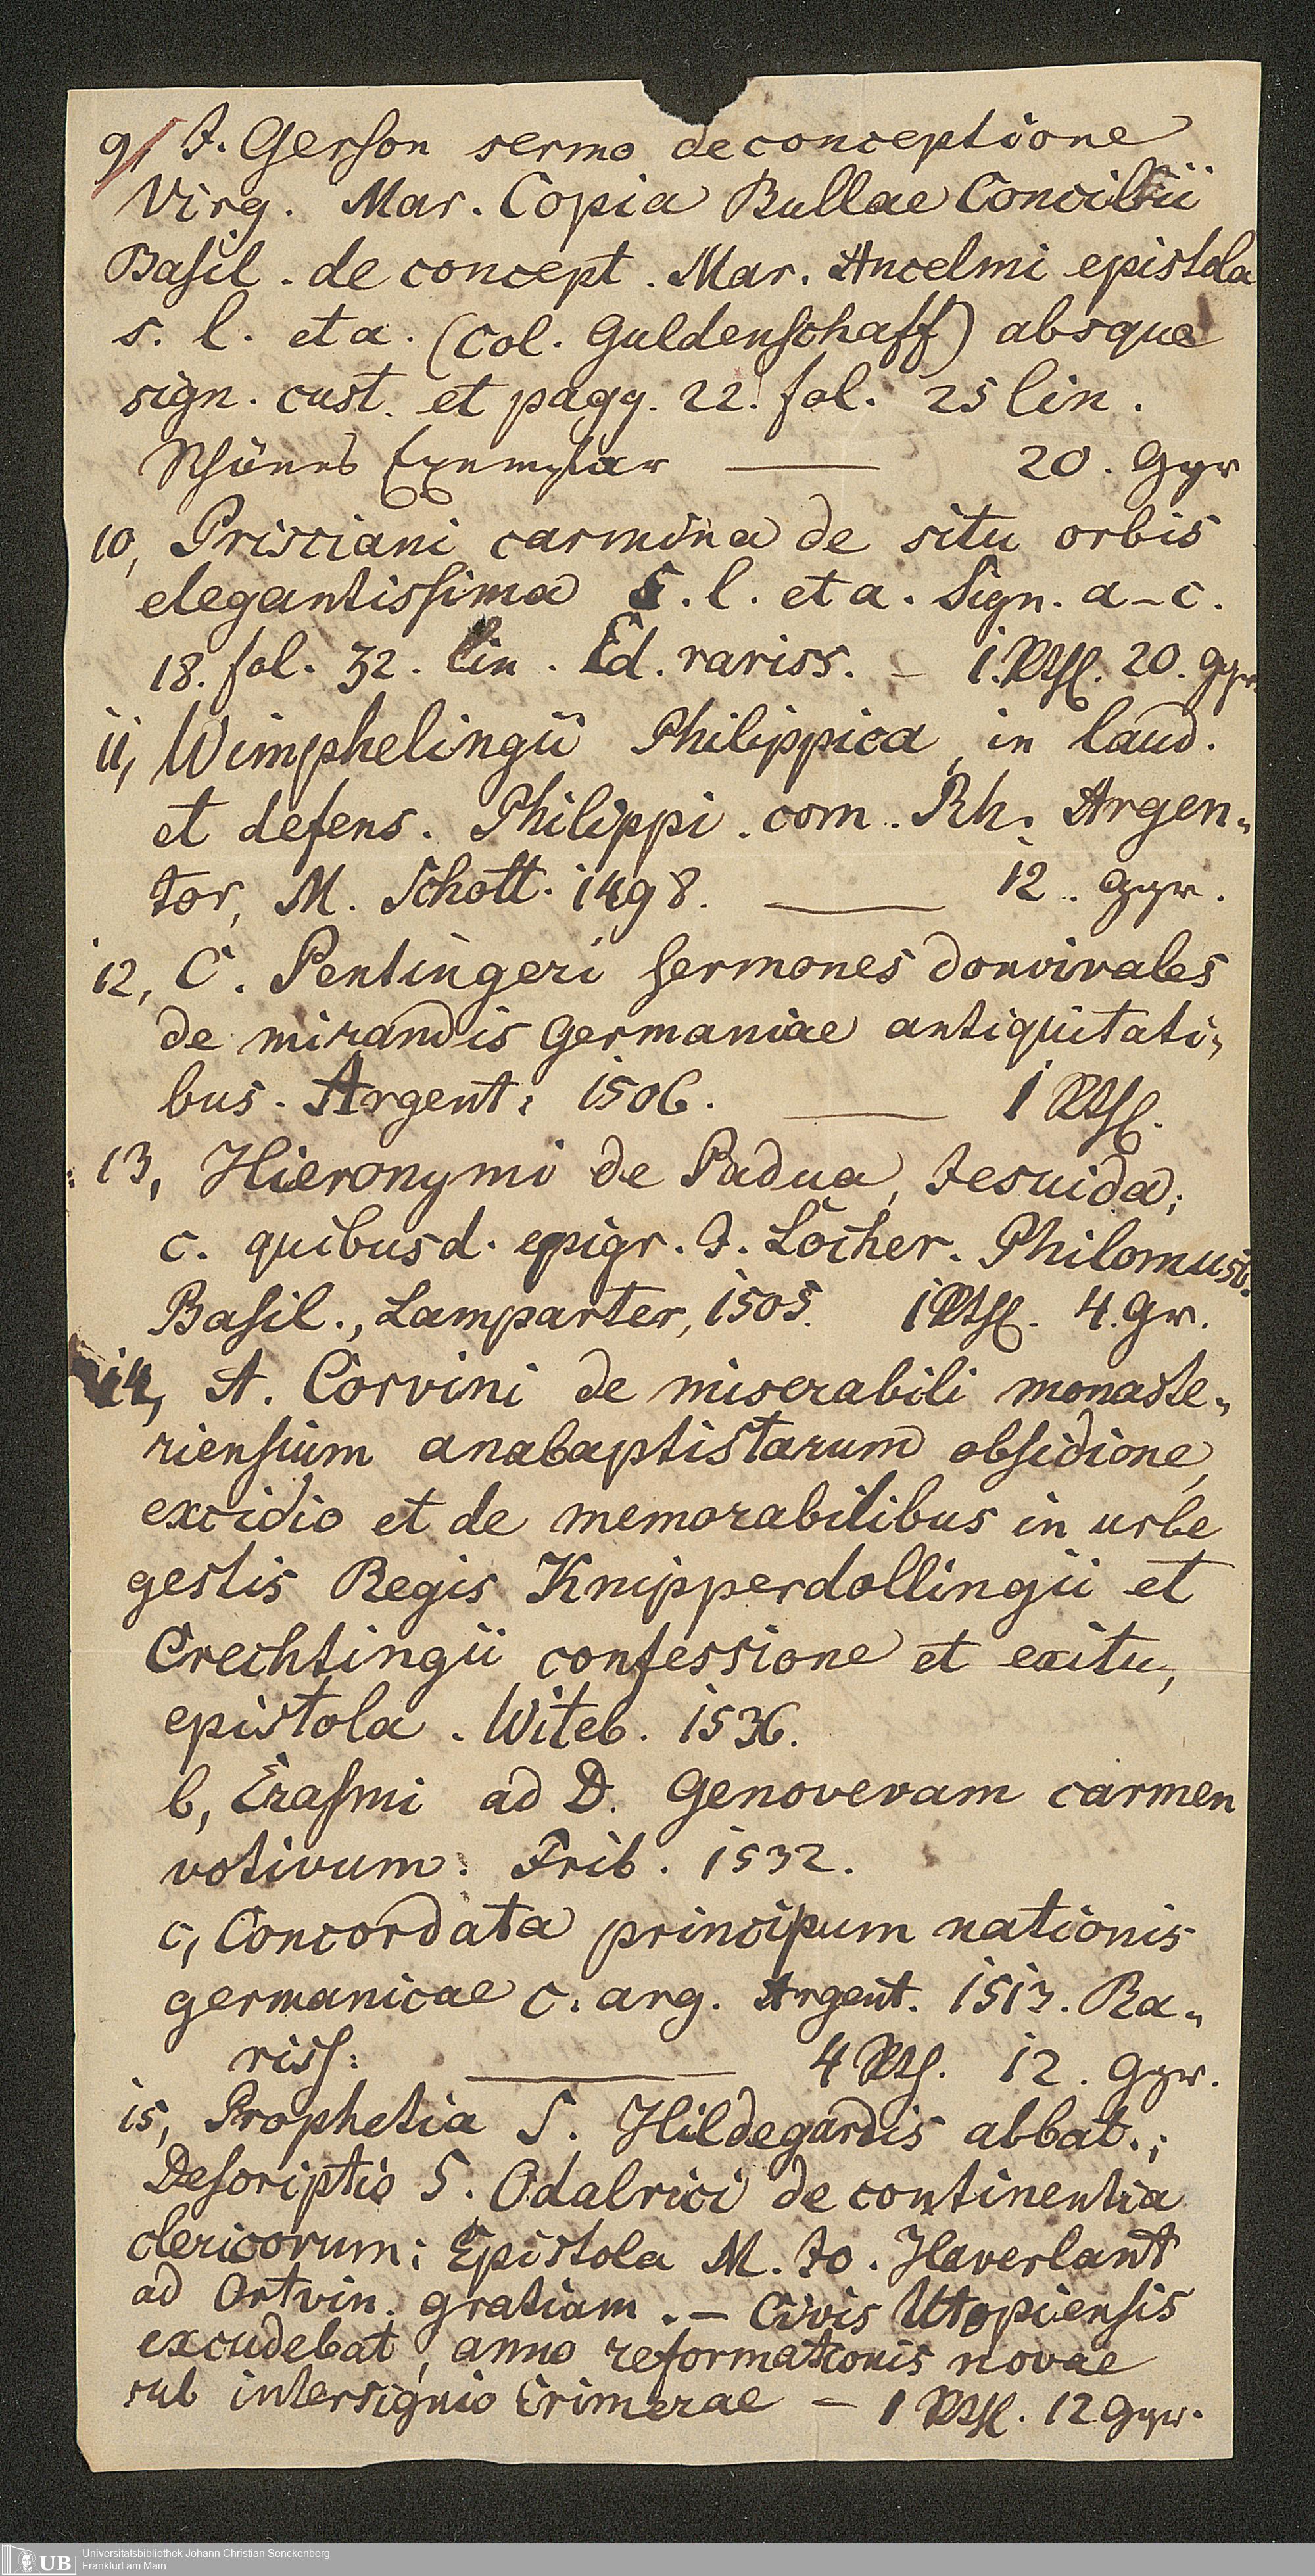 9, J. Gerson sermo de conceptione
Virg. Mar. Copia Bullae Concilii
Basil. de concept. Mar. Ancelmi epistola
s. l. et a. (Col. Guldenschaff) absque
sign. cust. et pagg. 22. fol. 25 lin.
Schönes Exemplar — 20. Ggr
10, Prisciani carmina de situ orbis
elegantissima S. l. et a. Sign. a–c.
18. fol. 32. lin. Ed. rariss. – 1. Rthl. 20. ggr
11, Wimphelingii Philippica, in laud.
et defens. Philippi. com. Rh. Argen-
tor, M. Schott. 1498. — 12. ggr.
12, C. Pentingeri sermones donvivales
de mirandis Germaniae antiquitati-
bus. Argent: 1506. — 1 Rthl.
13, Hieronymi de Padua, Jesuida;
c. quibusd. epigr. J. Locher. Philomusi.
Basil., Lamparter, 1505. 1 Rthl. 4. Gr.
14, A. Corvini de miserabili monaste-
riensium anabaptistarum obsidione,
excidio et de memorabilibus in urbe
gestis Regis Knipperdollingii et
Crechtingii confessione et exitu,
epistola. Witeb. 1536.
b, Erasmi ad D. Genovevam carmen
votivum. Frib. 1532.
c, Concordata principum nationis
germanicae c. arg. Argent. 1513. Ra-
riss: — 4 Rth. 12. Ggr.
15, Prophetia S. Hildegardis abbat.;
Descriptio S. Odalrici de continentia
clericorum; Epistola M. Jo. Haverlant
ad Ortvin. gratiam. – Civis Utopiensis
excudebat, anno reformationis novae
sub intersignio Erimerae – 1 Rthl. 12 Ggr.
UB
Universitätsbibliothek Johann Christian Senckenberg
Frankfurt am Main